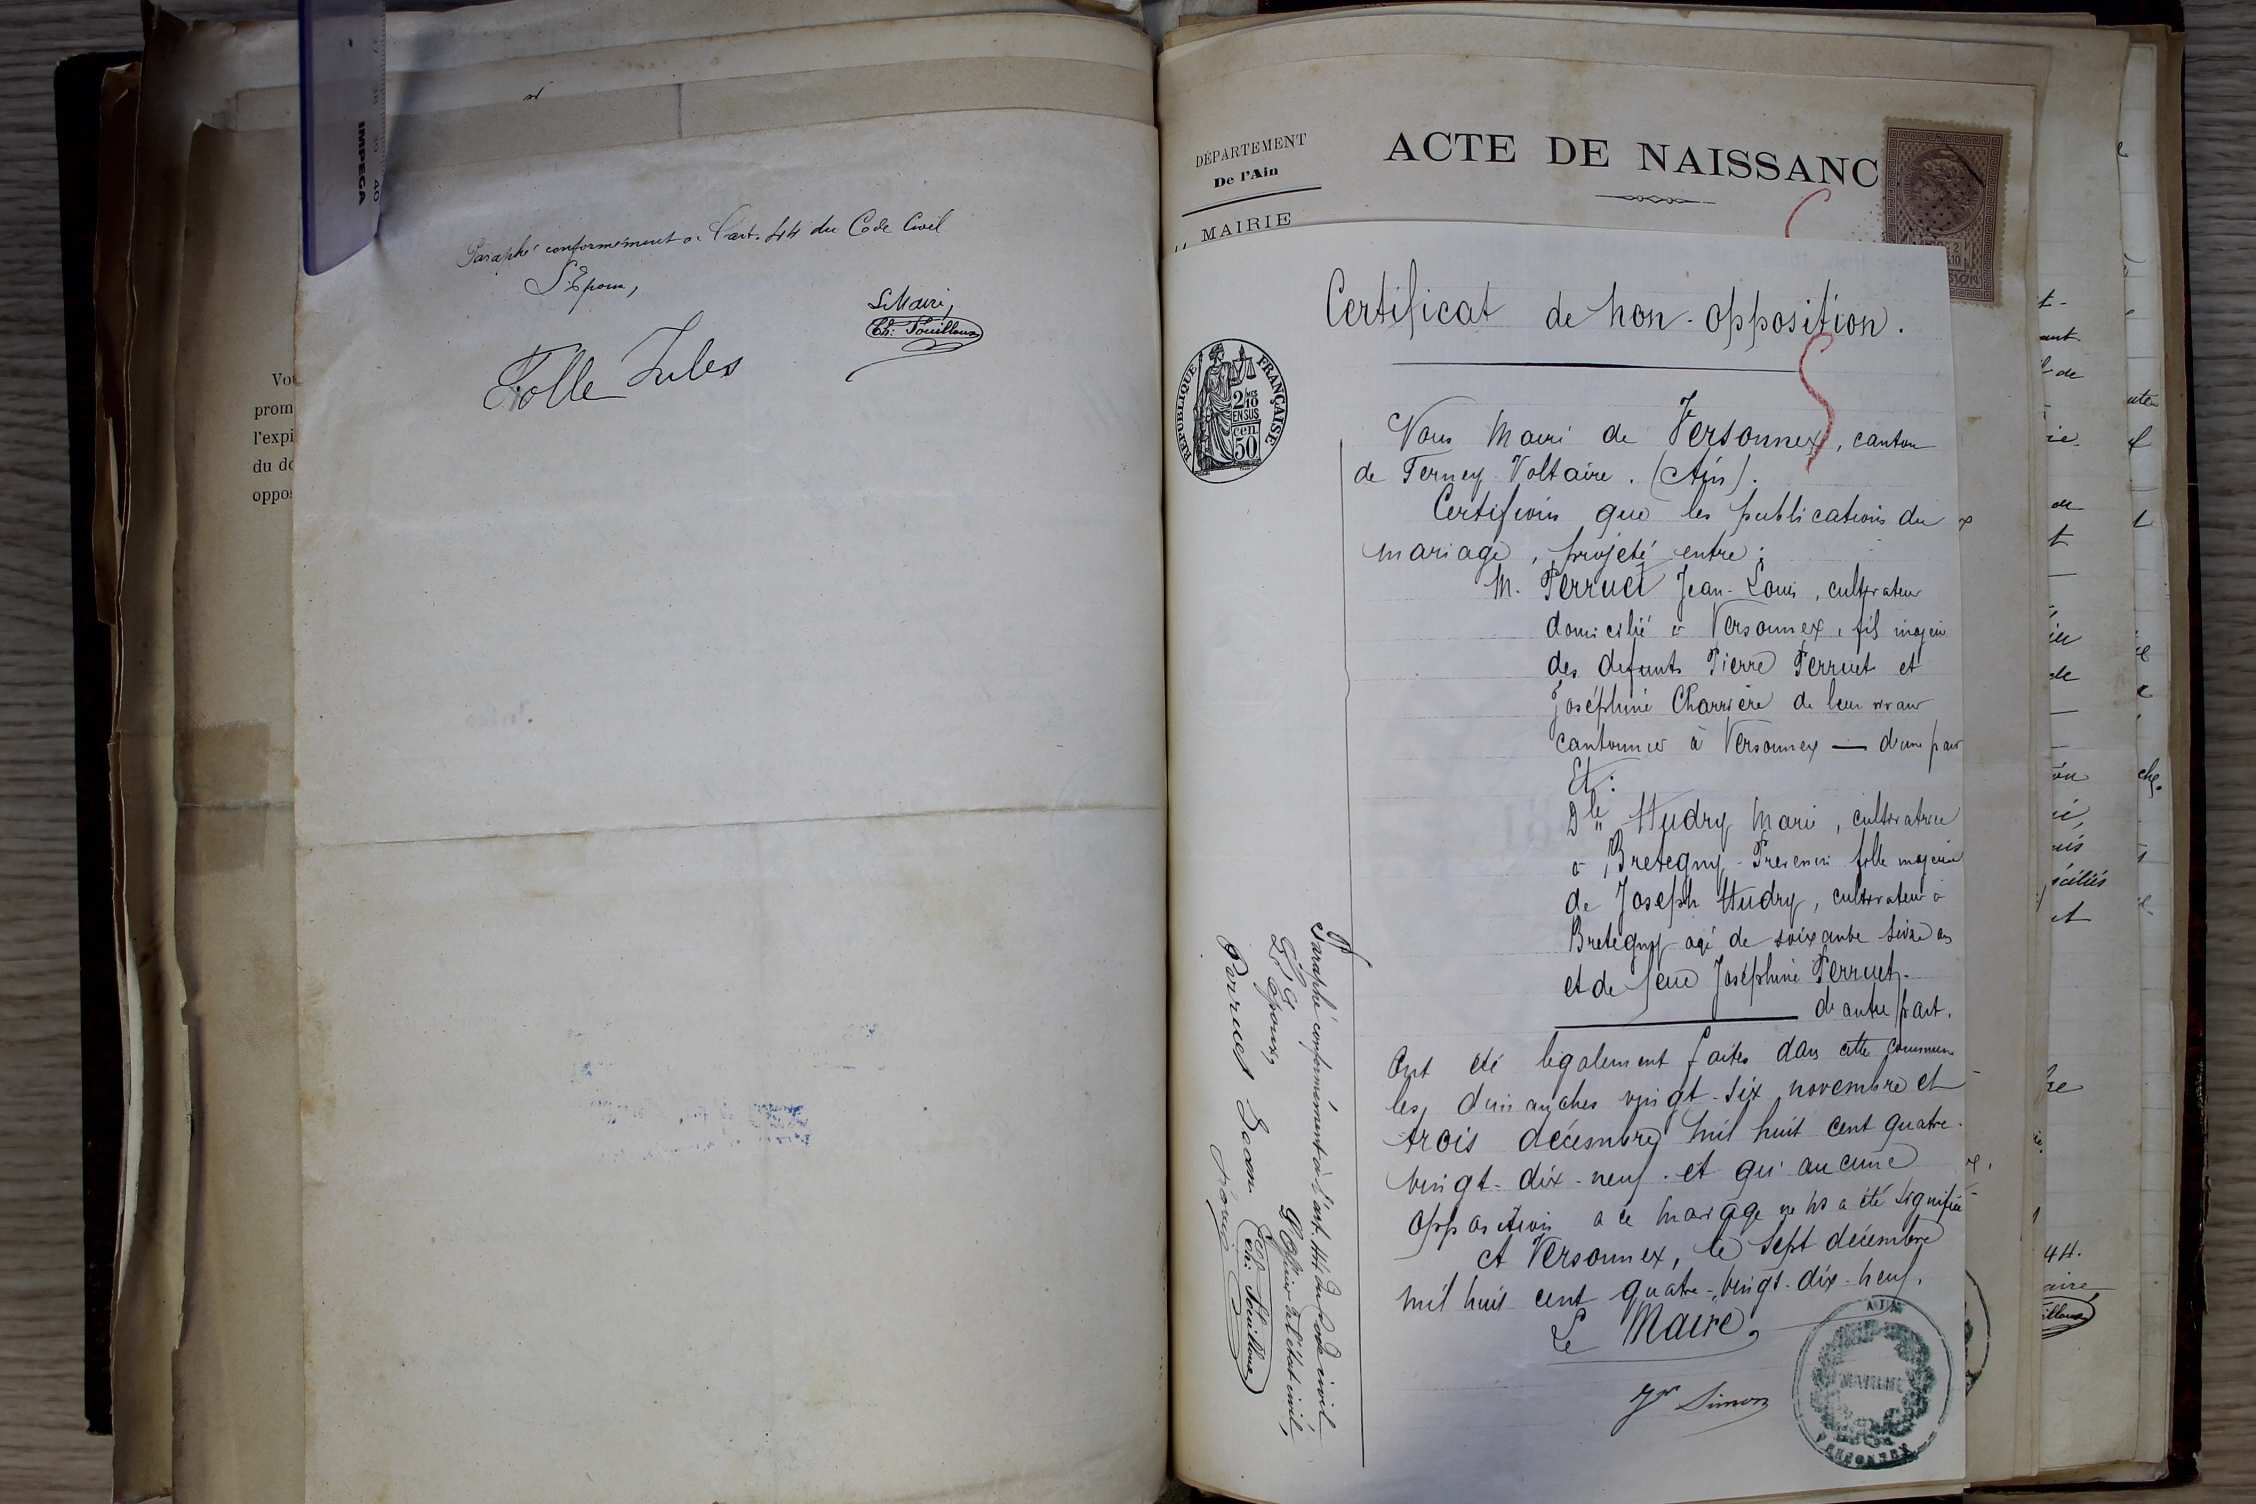 IMPEGA
Paraphé conformément à l'art. 44 du Code Civil
L'Epoux,
Le Maire,
Ch: Fouilloux
Folle Jules
Vou
prom
l'expi
du do
oppos
DÉPARTEMENT
De l'Ain
MAIRIE
ACTE DE NAISSANC
Certificat de non-opposition.
RÉPUBLIQUE FRANÇAISE
2/10
EN SUS
cen
50
Nous Maire de Versonnex, canton
de Ferney-Voltaire. (Ain).
Certifions que les publications du
mariage, projeté entre:
M. Perruet Jean-Louis, cultivateur
domicilié à Versonnex, fils majeur
des defunts Pierre Perruet et
Joséphine Charrière de leur vivant
cantonnier à Versonnex — d'une part
Et:
Dlle Hudry Marie, cultivatrice
à Bretegny-Prevessin fille majeure
de Joseph Hudry, cultivateur à
Bretegny agé de soixante seize ans
et de feue Joséphine Perruet.
d'autre part.
Ont été légalement faites dans cette commune
les dimanches vingt-six novembre et
trois décembre mil huit cent quatre-
vingt-dix-neuf. et qu'aucune
opposition à ce mariage ne ns a été signifiée
A Versonnex, le sept décembre
mil huit cent quatre-vingt-dix-neuf.
Le Maire,
Simon
AIN
MAIRIE
VERSONNEX
Paraphé conformément à l'art. 44 du Code civil
L'Epoux,
L'Officier de l'état civil,
Perruet Jean
Louis
Ch: Fouilloux